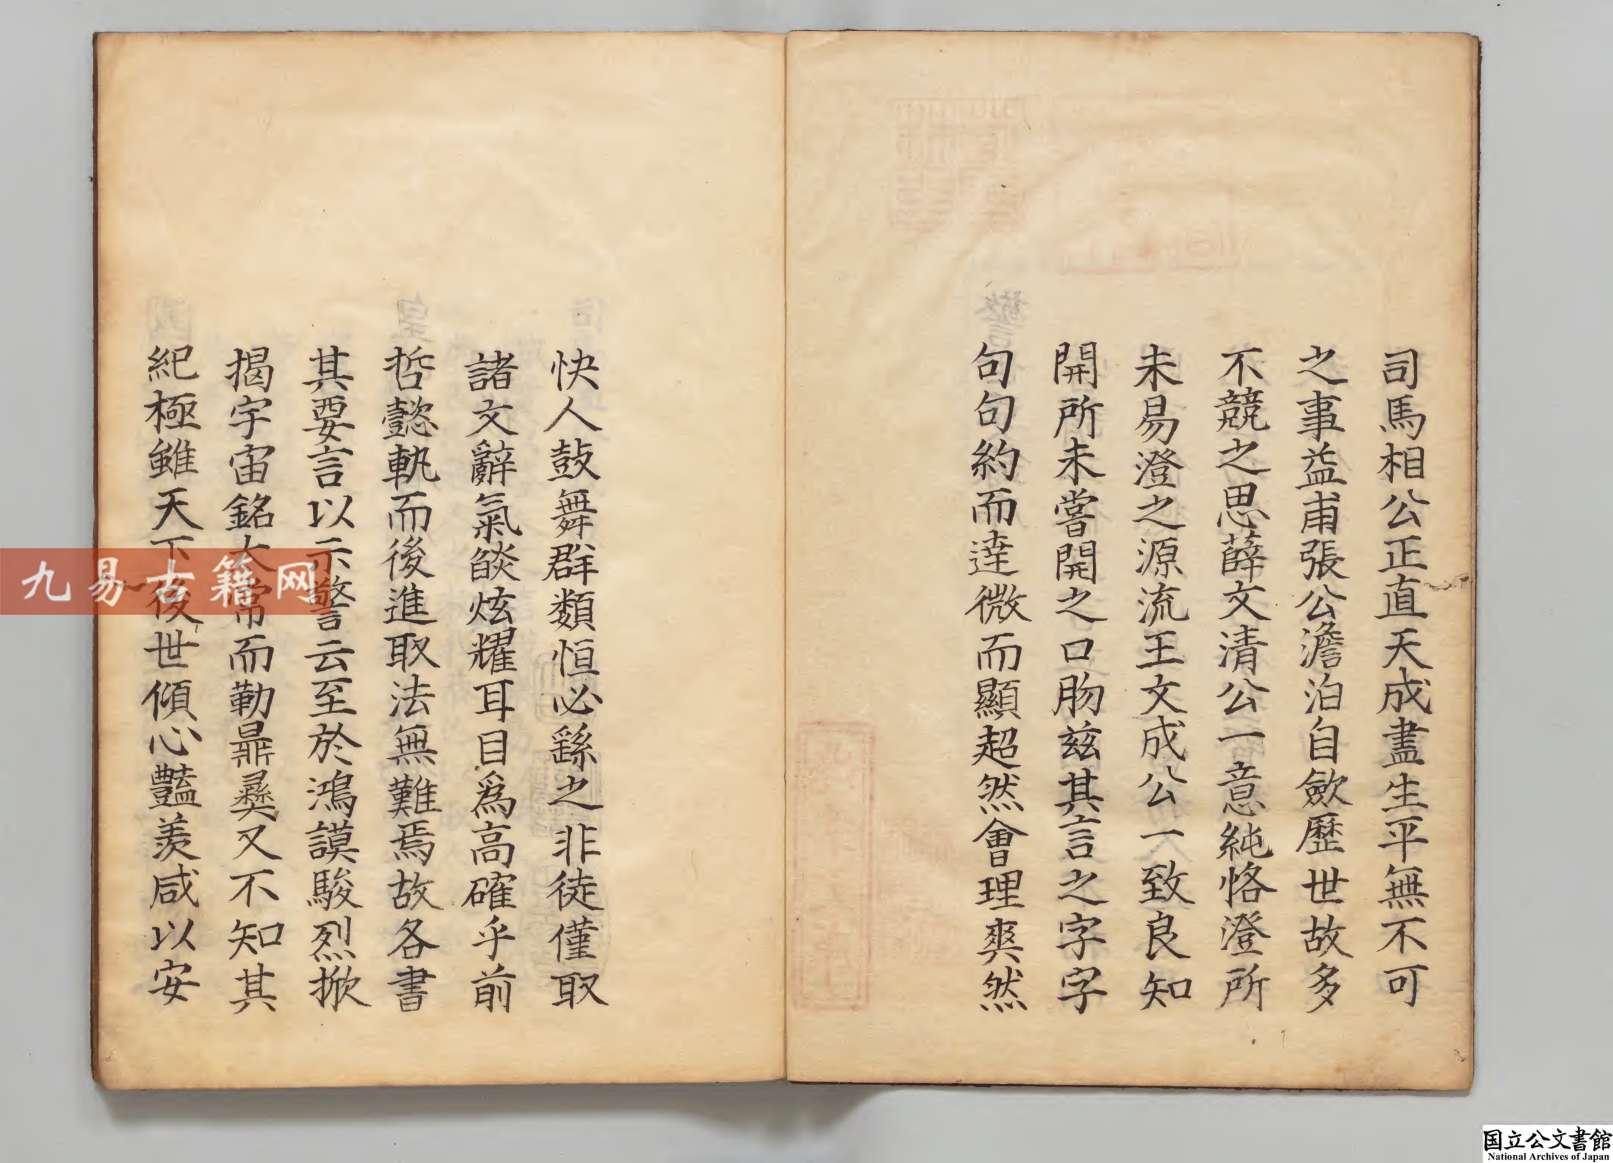 司馬相公正直天成盡生平無不可
之事益甫張公澹泊自歛歷世故多
不競之思薛文清公一意純恪澄所
未易澄之源流王文成公一致良知
開所未嘗開之口肳兹其言之字字
句句約而逹微而顯超然會理爽然
快人鼓舞群類恒必繇之非徒僅取
諸文辭氣燄炫耀耳目爲高確乎前
哲懿軌而後進取法無難焉故各書
其要言以示警云至於鴻謨駿烈掀
揭宇宙銘太常而勒鼎彞又不知其
紀極雖天下後世傾心豔羨咸以安
九易古籍网
国立公文書館
National Archives of Japan